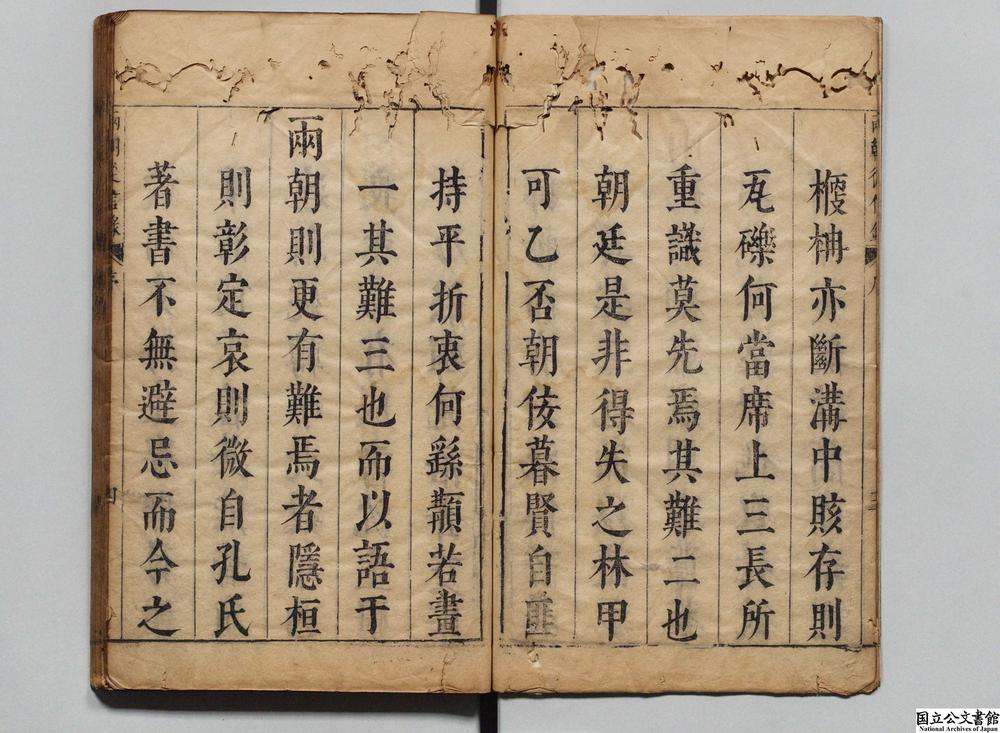 楩柟亦斷溝中賅存則
瓦礫何當席上三長所
重識莫先焉其難二也
朝廷是非得失之林甲
可乙否朝佞暮賢自匪
持平折衷何繇顜若畫
一其難三也而以語于
兩朝則更有難焉者隱桓
則彰定哀則微自孔氏
著書不無避忌而今之
国立公文書館
National Archives of Japan